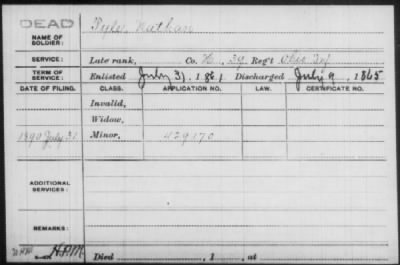 DEAD
NAME OF SOLDIER: Tyler Nathan
SERVICE: Late rank, Co. H, 39 Reg't Ohio Inf
TERM OF SERVICE: Enlisted July 31, 1861 Discharged July 9, 1865
DATE OF FILING. CLASS. APPLICATION NO. LAW. CERTIFICATE NO.
Invalid,
Widow,
1890 July 31 Minor, 429170
ADDITIONAL SERVICES:
REMARKS:
Died , 1 , at